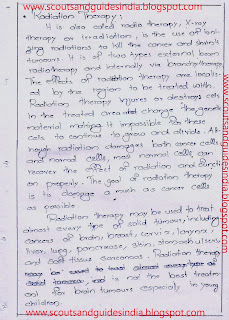 www.scoutsandguidesindia.blogspot.com
• Radiation Therapy :
It is also called radio therapy, X-ray
therapy or irradiation, is the use of ioni-
zing radiations to kill the cancer and shrink
tumours. It is of two types external beam
radiotherapy and internally via branchytherapy
The effects of radiation therapy are locali-
sed by the region to be treated with.
Radiation therapy injures or destroys cells
in the treated area and change the genetic
material making it impossible for these
cells to continue to grow and divide. Al-
though radiation damages both cancer cells
and normal cells, most normal cells can
recover the effect of radiation and function
on properly. The goal of radiation therapy
is to damage as much as cancer cells
as possible
Radiation therapy may be used to treat
almost every type of solid tumours, including
cancers of brain, breast, cervix, larynx,
liver, lung, pancrease, skin, stomach ulsers
and soft tissue sarcomas. Radiation therapy
is not the best treatm-
ent for brain tumours especially in young
children.
www.scoutsandguidesindia.blogspot.com
www.scoutsandguidesindia.blogspot.com
www.scoutsandguidesindia.blogspot.com